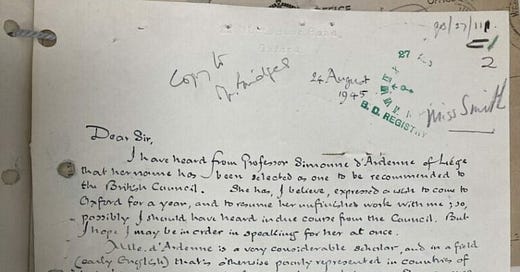 OFFICE
Oxford
98/27/111
2
27
B.D. REGISTRY
Copy to
Mr Bridges
24 August
1945
Miss Smith
Dear Sir,
I have heard from Professor Simonne d'Ardenne of Liége
that her name has been selected as one to be recommended to
the British Council. She has, I believe, expressed a wish to come to
Oxford for a year, and to resume her unfinished work with me; so,
possibly I should have heard in due course from the Council. But
I hope I may be in order in speaking for her at once.
Mlle. d'Ardenne is a very considerable scholar, and in a field
(early English) that's otherwise poorly represented in countries of